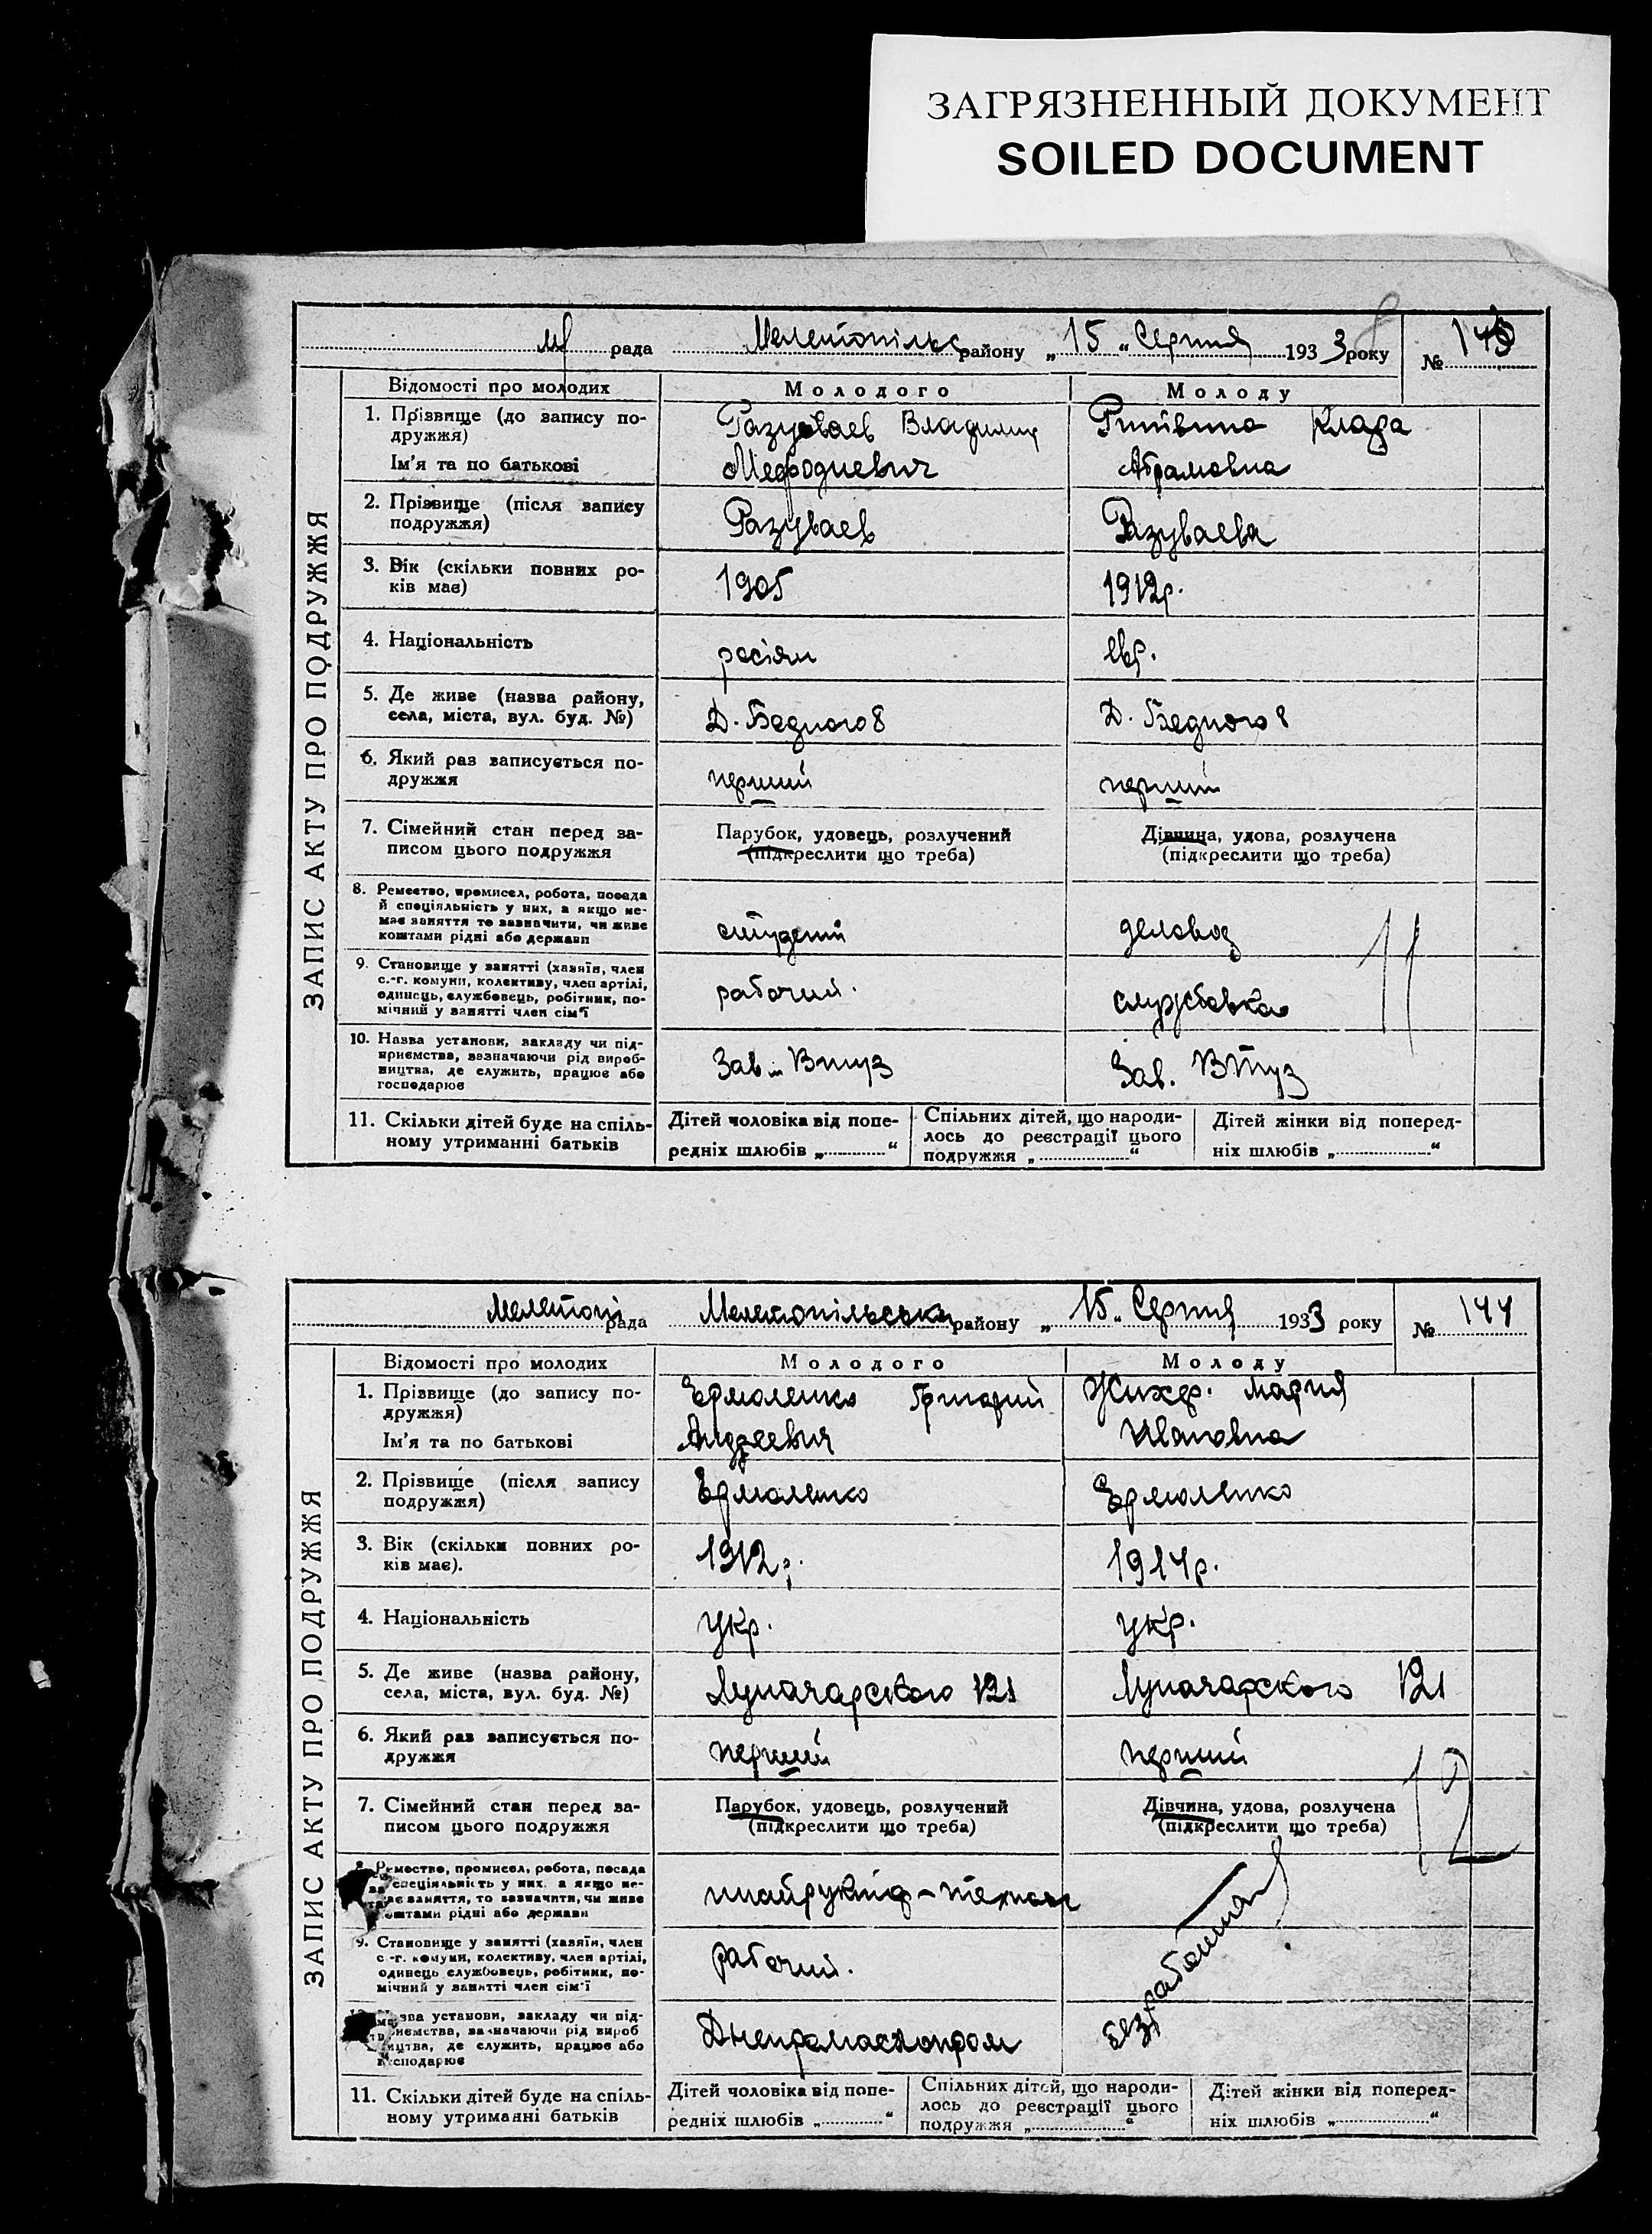 ЗАГРЯЗНЕННЫЙ ДОКУМЕНТ
SOILED DOCUMENT
рада Мелетопільс району „15“ Серпня 1933 року №
ЗАПИС АКТУ ПРО ПОДРУЖЖЯ
Відомості про молодих Молодого Молоду
1. Прізвище (до запису по- Разуваев Владимир Клара
дружжя)
Ім'я та по батькові Мефодиевич Абрамовна
2. Прізвище (після запису Разуваев Разуваева
подружжя)
3. Вік (скільки повних ро- 1905 1912р.
ків має)
4. Національність росіян євр.
5. Де живе (назва району, Д. Бедного 8 Д. Бедного 8
села, міста, вул. буд. №)
6. Який раз записується по- перший перший
дружжя
7. Сімейний стан перед за- Парубок, удовець, розлучений Дівчина, удова, розлучена
писом цього подружжя (підкреслити що треба) (підкреслити що треба)
8. Ремество, промисел, робота, посада
й спеціяльність у них, а якщо не-
має заняття то зазначити, чи живе студент деловод
коштами рідні або держави
9. Становище у занятті (хазяїн, член
с.-г. комуни, колективу, член артілі,
одинець, службовець, робітник, по- рабочий. службовка 11
мічний у занятті член сім'ї
10. Назва установи, закладу чи під-
приємства, зазначаючи рід вироб- Зав. Втуз Зав. ВТуз
ництва, де служить, працює або
господарює
11. Скільки дітей буде на спіль- Дітей чоловіка від попе- Спільних дітей, що народи- Дітей жінки від поперед-
ному утриманні батьків редніх шлюбів „ “ лось до реєстрації цього ніх шлюбів „ “
подружжя „ “
Мелетопі рада Мелетопільська району „15“ Серпня 1933 року № 144
ЗАПИС АКТУ ПРО ПОДРУЖЖЯ
Відомості про молодих Молодого Молоду
1. Прізвище (до запису по- Ермоленко Григорий Мария
дружжя)
Ім'я та по батькові Андреевич Ивановна
2. Прізвище (після запису Ермоленко Ермоленко
подружжя)
3. Вік (скільки повних ро- 1912р. 1914р.
ків має).
4. Національність укр. укр.
5. Де живе (назва району, Луначарского 121 Луначарского 121
села, міста, вул. буд. №)
6. Який раз записується по- перший перший
дружжя
7. Сімейний стан перед за- Парубок, удовець, розлучений Дівчина, удова, розлучена 12
писом цього подружжя (підкреслити що треба) (підкреслити що треба)
Ремество, промисел, робота, посада
спеціяльність у них, а якщо не-
заняття, то зазначити, чи живе
коштами рідні або держави
9. Становище у занятті (хазяїн, член
с.-г. комуни, колективу, член артілі,
одинець службовець, робітник, по- рабочий. безработная
мічний у занятті член сім'ї
установи, закладу чи під-
приємства, зазначаючи рід вироб
ництва, де служить, працює або
господарює
11. Скільки дітей буде на спіль- Дітей чоловіка від попе- Спільних дітей, що народи- Дітей жінки від поперед-
ному утриманні батьків редніх шлюбів „ “ лось до реєстрації цього ніх шлюбів „ “
подружжя „ “